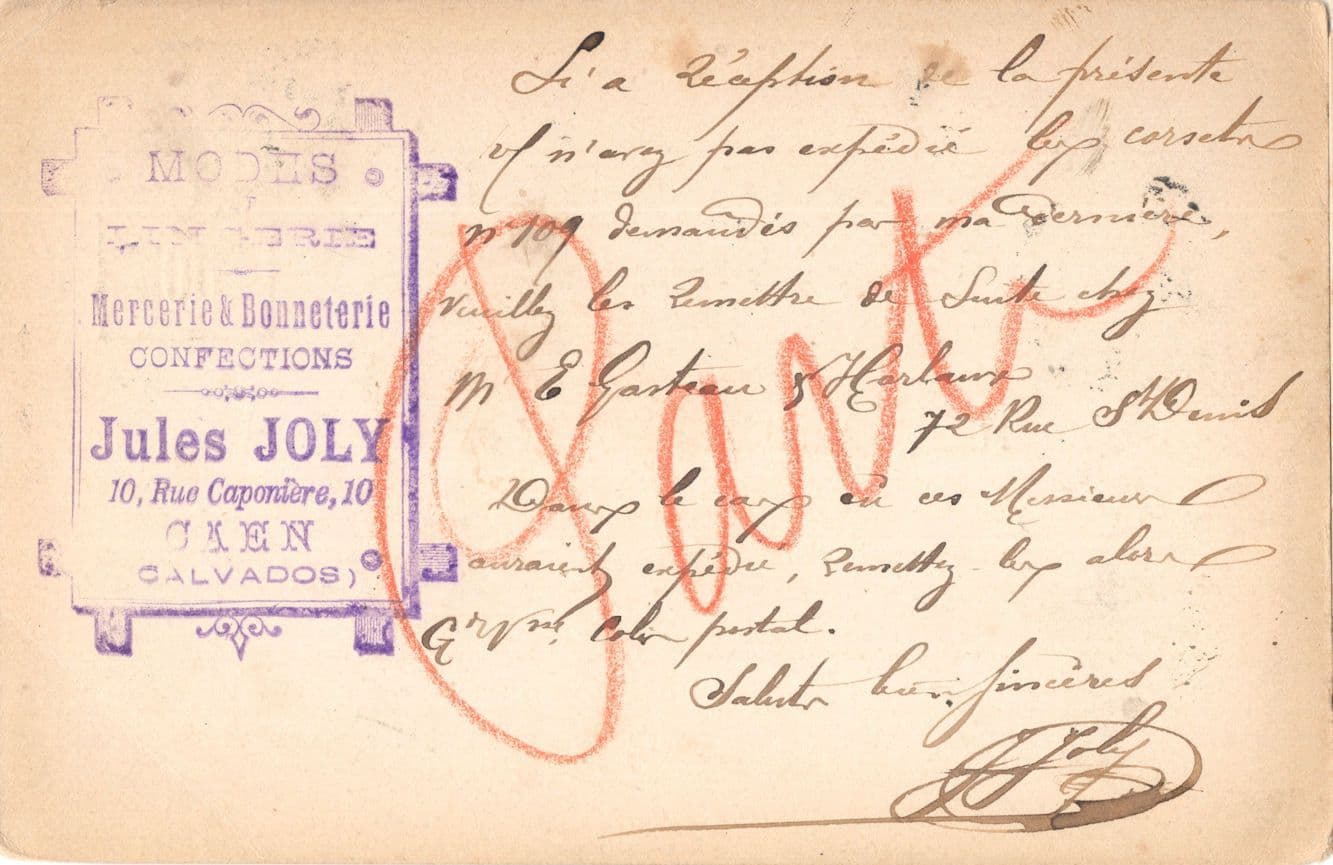 MODES
LINGERIE
Mercerie & Bonneterie
CONFECTIONS
Jules JOLY
10, Rue Caponière, 10
CAEN
CALVADOS)
Si a réception de la présente
n'avez pas expédié les corsets
n 109 demandés par ma dernière,
veuillez les remettre de suite chez
M E Gasteau & Harlaux
72 Rue St Denis
Dans le cas où ces Messieurs
auraient expédié, remettez les alors
Colis postal.
Saluts bien sincères
J Joly